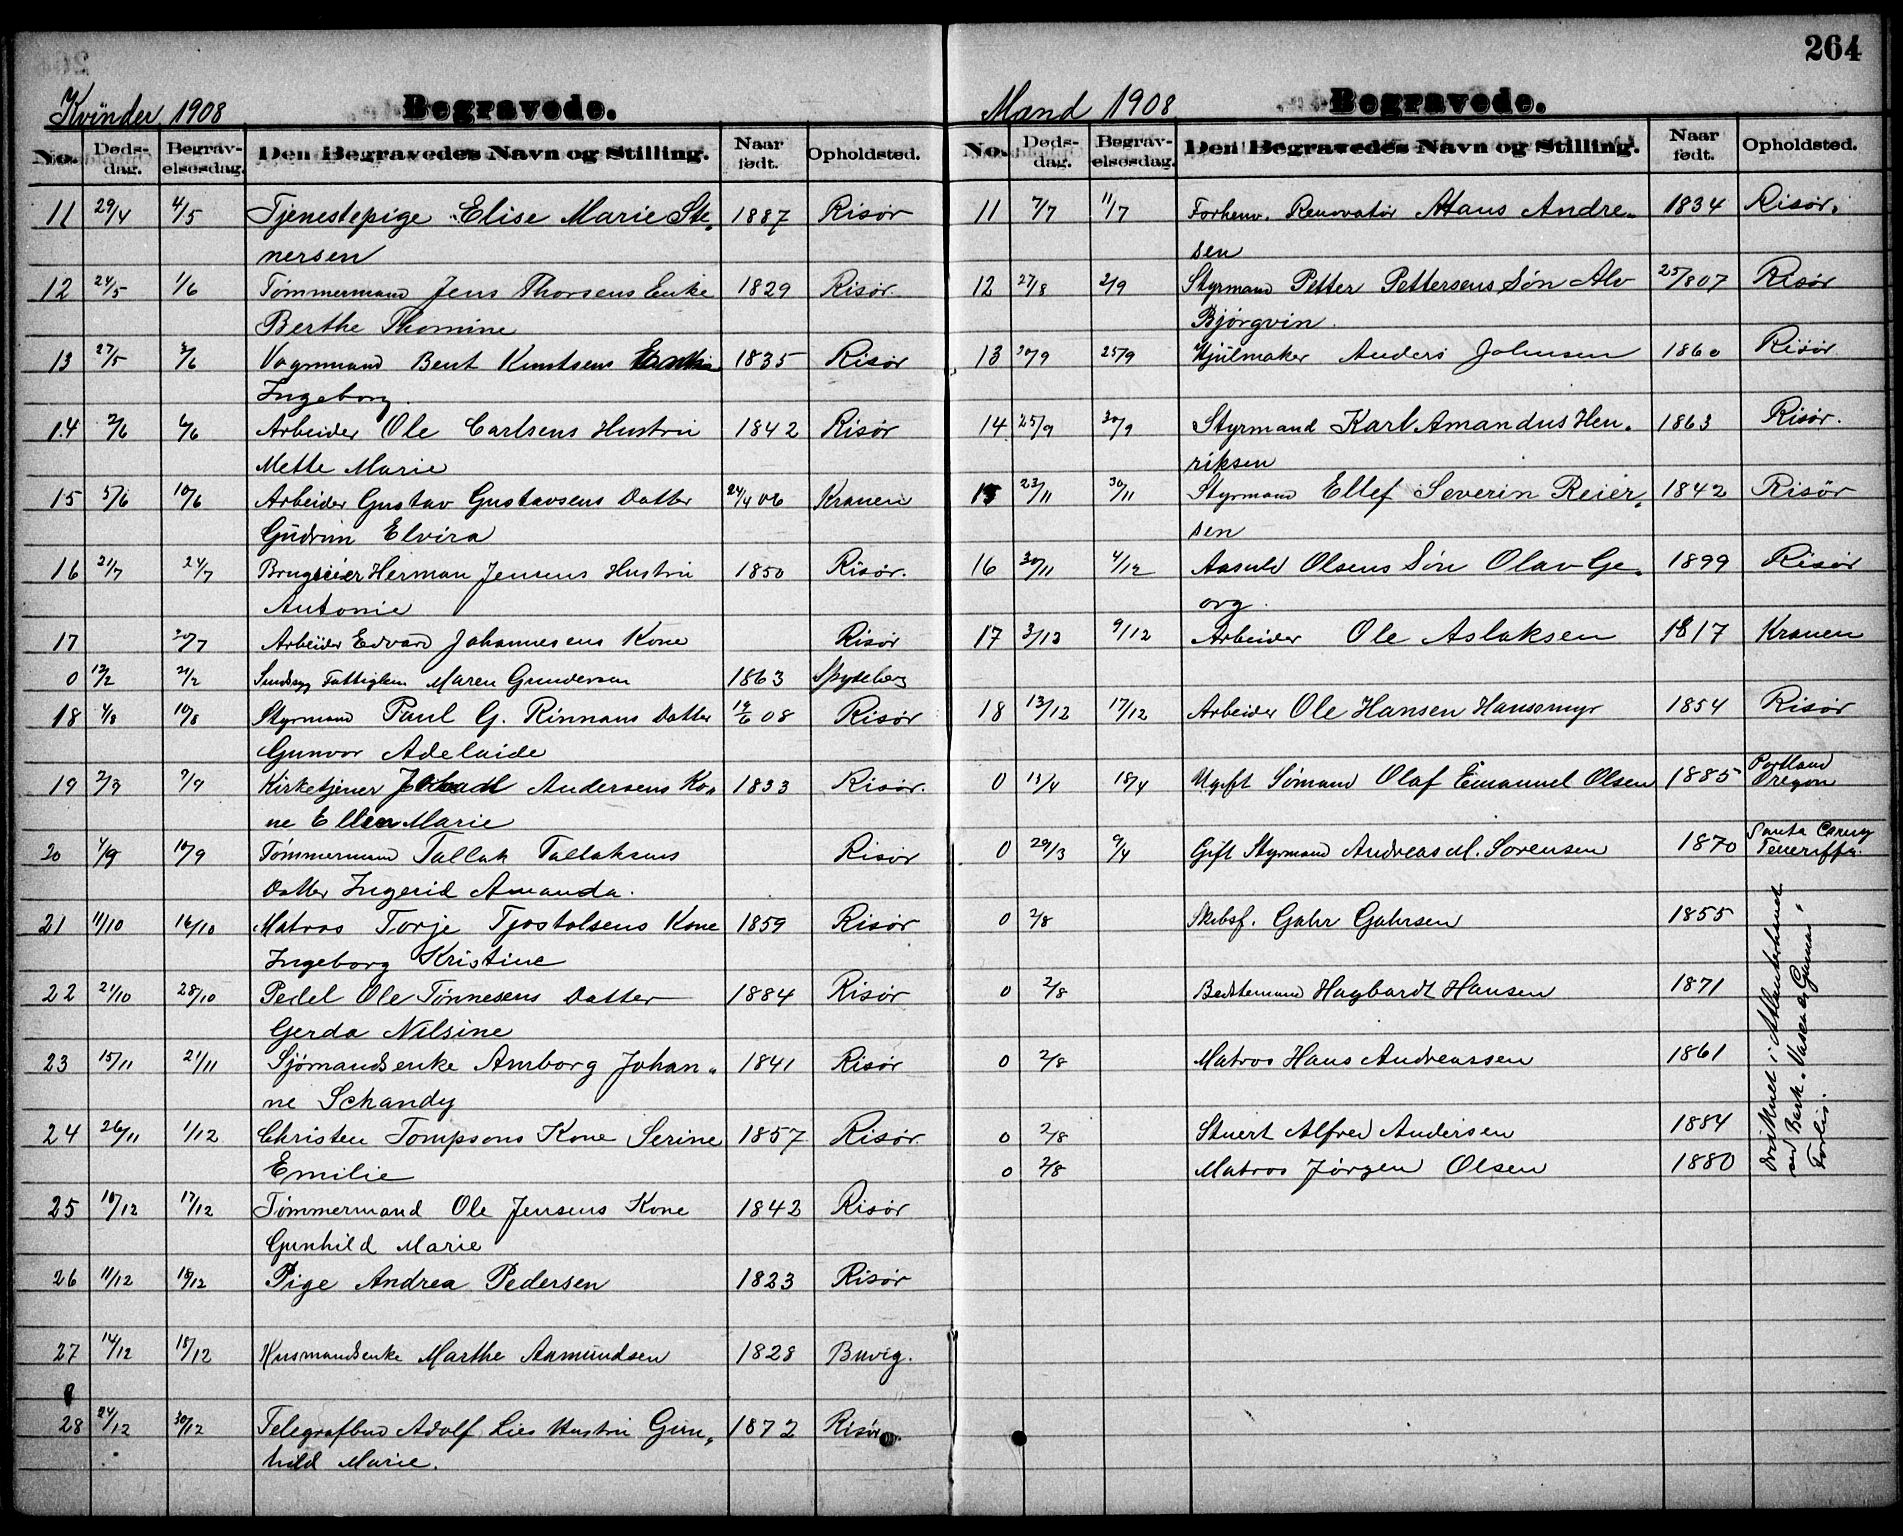 264
Kvinder 1908 Begravede.
No. Døds-dag. Begrav-elsesdag. Den Begravedes Navn og Stilling. Naar født. Opholdsted.
11 29/4 4/5 Tjenestepige Elise Marie Ste- 1887 Risør
nersen
12 24/5 1/6 Tømmermand Jens Thorsens Enke 1829 Risør
Berthe Thomine
13 27/5 /6 Vognmand Bent Knutsens Enke 1835 Risør
Ingeborg.
14 2/6 6/6 Arbeider Ole Carlsens Hustru 1842 Risør
Mette Marie
15 5/6 10/6 Arbeider Gustav Gustavsens Datter 24/4 06 Kranen
Gudrun Elvira
16 21/7 24/7 Brugseier Herman Jensens Hustru 1850 Risør.
Antonie
17 20/7 Arbeider Edvard Johannesens Kone Risør
0 12/2 21/2 Sindsyg Fattiglem Maren Gundersen 1863 Spydeberg
18 4/8 10/8 Styrmand Paul G. Rinnans Datter 12/6 08 Risør
Gunvor Adelaide
19 2/9 7/9 Kirketjener Andersens Ko- 1833 Risør.
ne Ellen Marie
20 4/9 10/9 Tømmermand Tallak Tallaksens Risør
Datter Ingerid Amanda.
21 11/10 16/10 Matros Torje Tjostolsens Kone 1859 Risør
Ingeborg Kristine
22 21/10 28/10 Pedel Ole Tønnesens Datter 1884 Risør
Gerda Nilsine
23 15/11 21/11 Sjømandsenke Amborg Johan- 1841 Risør
ne Schandy
24 26/11 1/12 Christen Tompsons Kone Serine 1857 Risør
Emilie
25 10/12 17/12 Tømmermand Ole Jensens Kone 1842 Risør
Gunhild Marie
26 11/12 18/12 Pige Andrea Pedersen 1823 Risør
27 14/12 18/12 Husmandsenke Marthe Aamundsen 1828 Buvig.
28 24/12 30/12 Telegrafbud Adolf Lies Hustru Gun- 1872 Risør
hild Marie.
Mand 1908 Begravede.
No. Døds-dag. Begrav-elsesdag. Den Begravedes Navn og Stilling. Naar født. Opholdsted.
11 7/7 11/7 Forhenv. Renovatør Hans Andre- 1834 Risør.
sen
12 27/8 2/9 Styrmand Petter Pettersens Søn Alv 25/8 07 Risør
Bjørgvin.
13 20/9 25/9 Hjulmaker Anders Johnsen 1860 Risør
14 25/9 30/9 Styrmand Karl Amandus Hen- 1863 Risør.
riksen
15 23/11 30/11 Styrmand Ellef Severin Reier- 1842 Risør
sen
16 30/11 4/12 Aasuld Olsens Søn Olav Ge- 1899 Risør
org.
17 3/12 9/12 Arbeider Ole Aslaksen 1817 Kranen
18 13/12 17/12 Arbeider Ole Hansen Hansemyr 1854 Risør
0 13/4 18/4 Ugift Sømand Olaf Emanuel Olsen 1885 Portland Oregon
0 29/3 9/4 Gift Styrmand Andreas M. Sørensen 1870 Santa Cruz Teneriffa.
0 2/8 Skibsf. Gahr Gahrsen 1855
0 2/8 Bedstemand Hagbardt Hansen 1871
0 2/8 Matros Hans Andreassen 1861
0 2/8 Stuert Alfred Andersen 1884
0 2/8 Matros Jørgen Olsen 1880
Druknet i Atlanterhavet
ved Bark. Vasco de Gamas
Forlis.